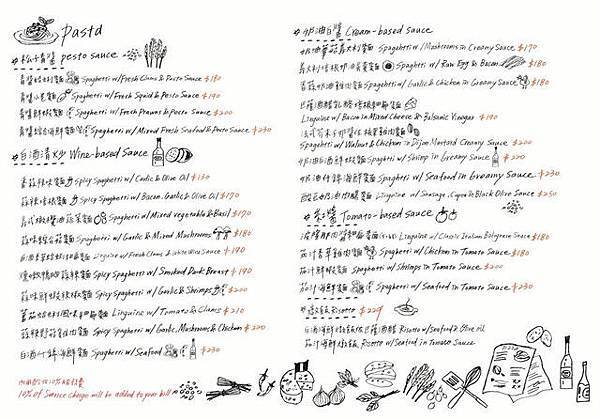 Pasta
松子青醬 pesto sauce
青醬蛤蜊麵 Spaghetti w/Fresh Clams & Pesto Sauce $180
青醬小卷麵 Spaghetti w/Fresh Squid & Pesto Sauce $190
青醬鮮蝦麵 Spaghetti w/Fresh Prawns & Pesto Sauce $200
青醬綜合海鮮麵 Spaghetti w/Mixed Fresh Seafood & Pesto Sauce $230
白酒清炒 Wine-based Sauce
蒜辣味麵 Spicy Spaghetti w/Garlic & Olive Oil $130
Spicy Spaghetti w/Bacon, Garlic & Olive Oil $170
Spaghetti w/Mixed vegetable & Basil $170
Spaghetti w/Garlic & Mixed Mushrooms $180
Linguine w/Fresh Clams & White Wine Sauce $190
Spicy Spaghetti w/Smoked Duck Breast $190
Spicy Spaghetti w/Garlic & Shrimps $200
Linguine w/Tomato & Clams $210
Spicy Spaghetti w/Garlic, Mushroom & Chicken $220
白酒什錦海鮮麵 Spaghetti w/Seafood $230
10% of Service Charge will be added to your bill
奶油白醬 Cream-based Sauce
奶油蘑菇義大利麵 Spaghetti w/Mushrooms in Creamy Sauce $170
Spaghetti w/Raw Egg & Bacon $180
蒜菇奶油雞肉麵 Spaghetti w/Garlic & Chicken in Creamy Sauce $180
Linguine w/Bacon in Mixed Cheese & Balsamic Vinegar $190
Spaghetti w/Walnut & Chicken in Dijon Mustard Creamy Sauce $200
奶油白酒鮮蝦麵 Spaghetti w/Shrimp in Creamy Sauce $220
奶油什錦海鮮麵 Spaghetti w/Seafood in Creamy Sauce $230
Linguine w/Sausage, Capers & Black Olive Sauce $250
紅醬 Tomato-based sauce
波隆那肉醬細扁麵 Linguine w/Classic Italian Bolognese Sauce $180
茄汁香草雞肉麵 Spaghetti w/Chicken in Tomato Sauce $180
茄汁鮮蝦麵 Spaghetti w/Shrimps in Tomato Sauce $200
茄汁海鮮麵 Spaghetti w/Seafood in Tomato Sauce $230
燉飯 Risotto $229
Risotto w/Seafood & Olive oil
茄汁海鮮燉飯 Risotto w/Seafood in Tomato Sauce